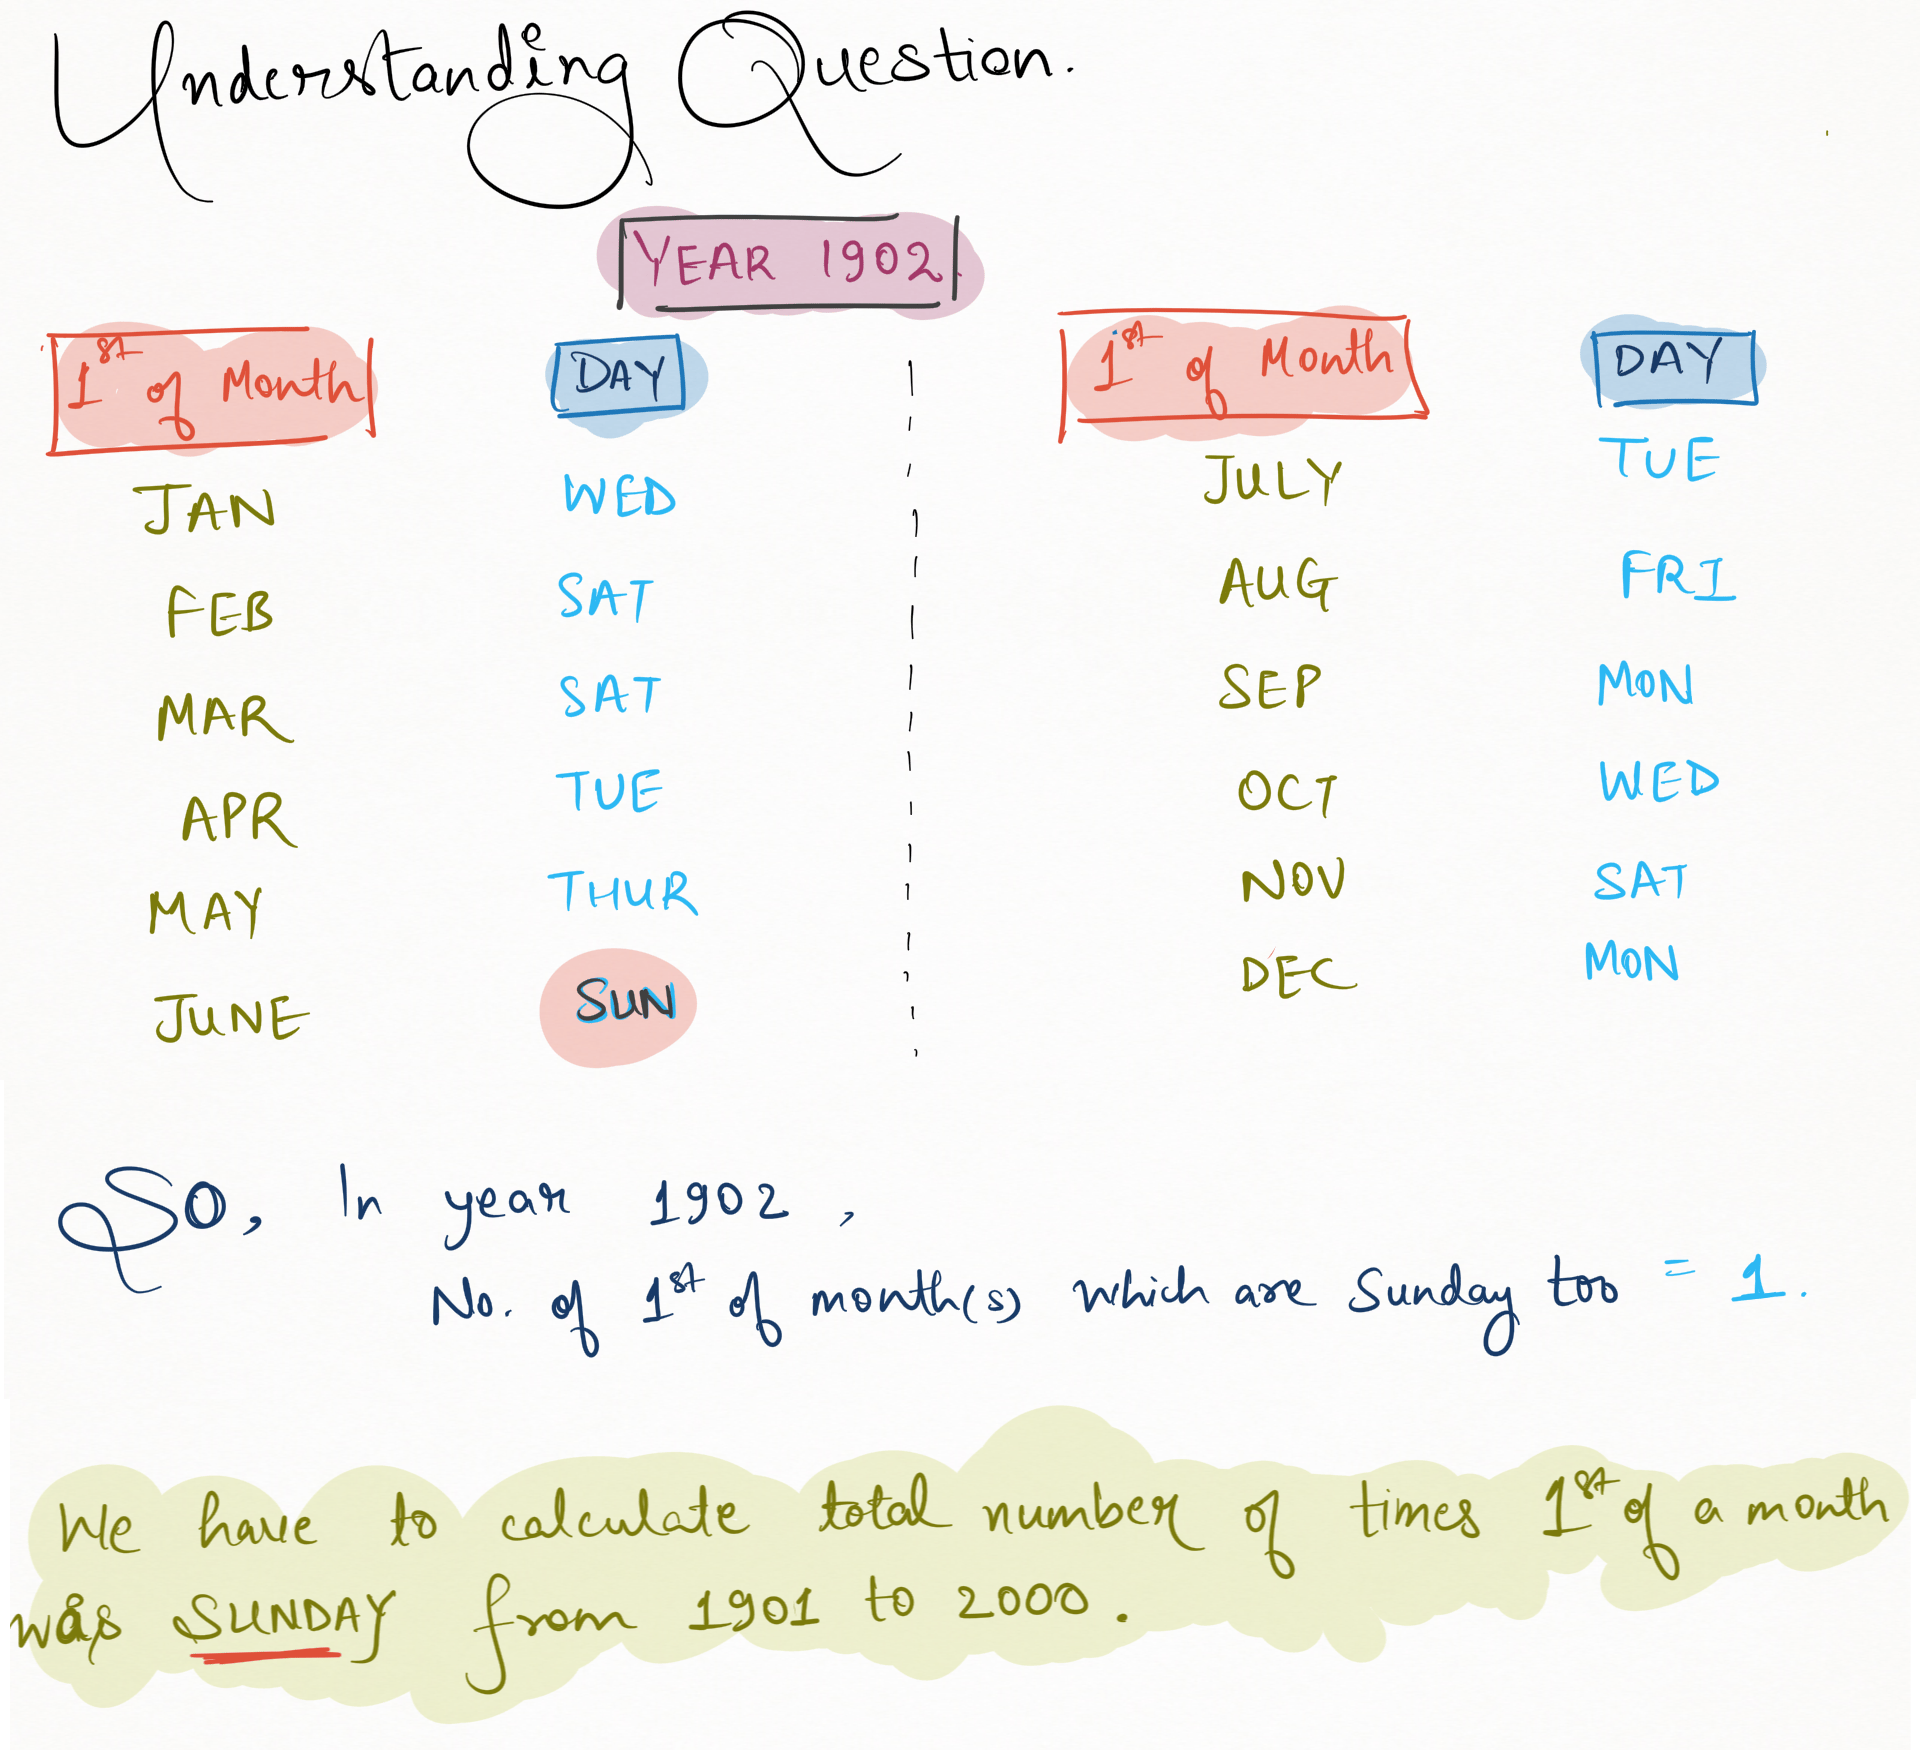 Understanding Question.
YEAR 1902.
1st of Month DAY 1st of Month DAY
JAN WED JULY TUE
FEB SAT AUG FRI
MAR SAT SEP MON
APR TUE OCT WED
MAY THUR NOV SAT
JUNE SUN DEC MON
SO, In year 1902,
No. of 1st of month(s) which are Sunday too = 1.
We have to calculate total number of times 1st of a month
was SUNDAY from 1901 to 2000.